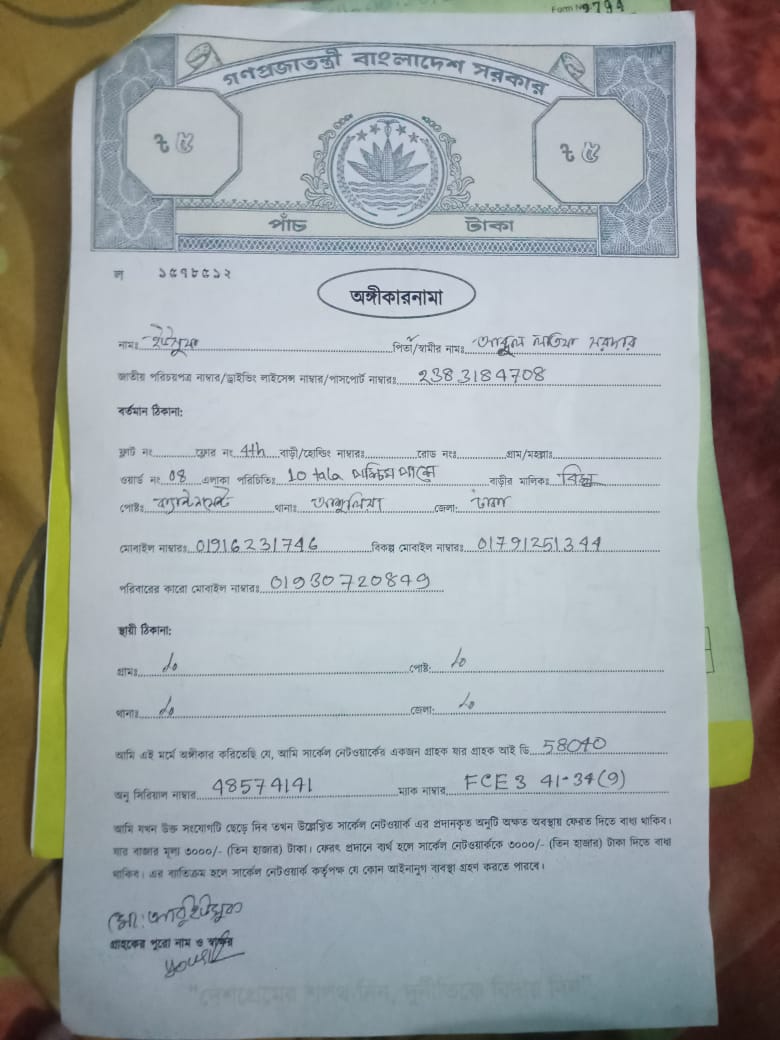 Form No 9794
গণপ্রজাতন্ত্রী বাংলাদেশ সরকার
৳ ৫ ৳ ৫
পাঁচ টাকা
ল ১৫৭৮৫১২
অঙ্গীকারনামা
নামঃ ইউসুফ পিতা/স্বামীর নামঃ আব্দুল লতিফ সরদার
জাতীয় পরিচয়পত্র নাম্বার/ড্রাইভিং লাইসেন্স নাম্বার/পাসপোর্ট নাম্বারঃ 2383184708
বর্তমান ঠিকানা:
ফ্লাট নং ফ্লোর নং 4th বাড়ী/হোল্ডিং নাম্বারঃ রোড নংঃ গ্রাম/মহল্লাঃ
ওয়ার্ড নং 08 এলাকা পরিচিতিঃ 10 tala পশ্চিম পাশে বাড়ীর মালিকঃ
পোষ্টঃ ক্যান্টনমেন্ট থানাঃ আশুলিয়া জেলা: ঢাকা
মোবাইল নাম্বারঃ 01916231746 বিকল্প মোবাইল নাম্বারঃ 01791251344
পরিবারের কারো মোবাইল নাম্বারঃ 01930720849
স্থায়ী ঠিকানা:
গ্রামঃ do পোষ্ট: do
থানাঃ do জেলা: do
আমি এই মর্মে অঙ্গীকার করিতেছি যে, আমি সার্কেল নেটওয়ার্কের একজন গ্রাহক যার গ্রাহক আই ডি 58040
অনু সিরিয়াল নাম্বার 48574141 ম্যাক নাম্বার FCE3 41-34(9)
আমি যখন উক্ত সংযোগটি ছেড়ে দিব তখন উল্লেখিত সার্কেল নেটওয়ার্ক এর প্রদানকৃত অনুটি অক্ষত অবস্থায় ফেরত দিতে বাধ্য থাকিব।
যার বাজার মূল্য ৩০০০/- (তিন হাজার) টাকা। ফেরৎ প্রদানে ব্যর্থ হলে সার্কেল নেটওয়ার্ককে ৩০০০/- (তিন হাজার) টাকা দিতে বাধ্য
থাকিব। এর ব্যতিক্রম হলে সার্কেল নেটওয়ার্ক কর্তৃপক্ষ যে কোন আইনানুগ ব্যবস্থা গ্রহণ করতে পারবে।
মো: আবু ইউসুফ
গ্রাহকের পুরো নাম ও স্বাক্ষর